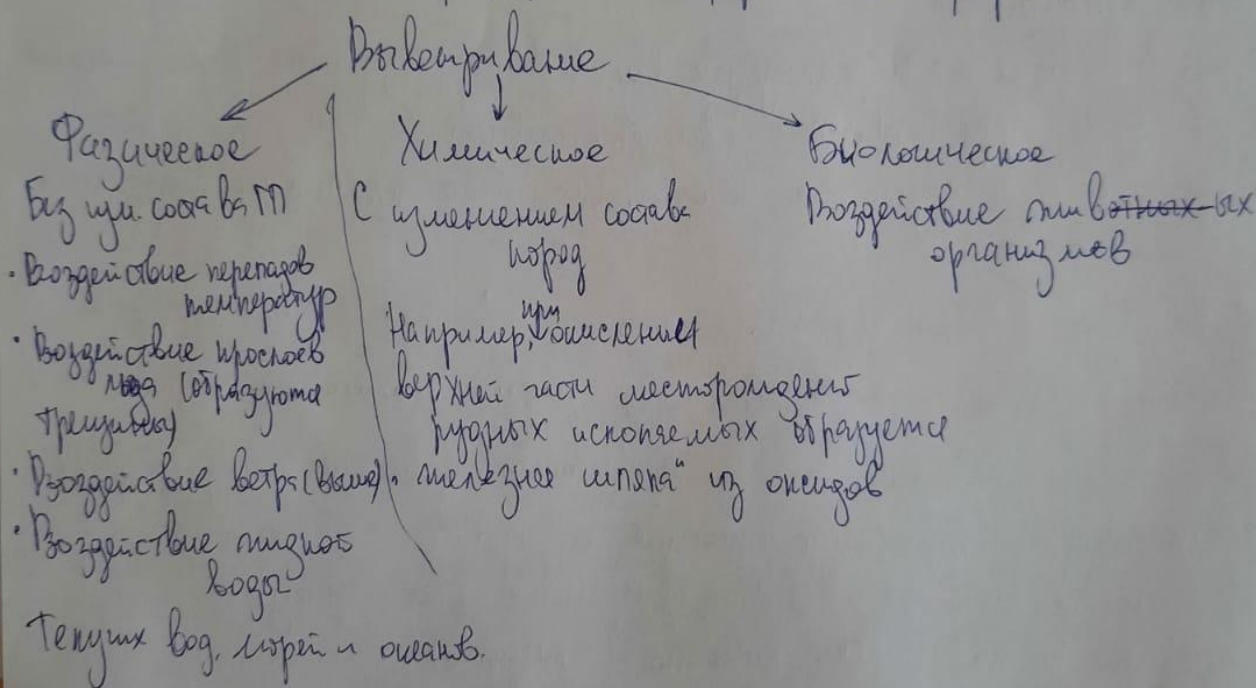 Выветривание
Физическое
Без изм. состава ГП
• Воздействие перепадов
температур
• Воздействие прослоев
льда (образуются
трещины)
• Воздействие ветра (выше)
• Воздействие жидкой
воды
Текучих вод, морей и океанов.
Химическое
С изменением состава
пород
Например, при окислении
верхней части месторождений
рудных ископаемых образуется
„железная шляпа“ из оксидов
Биологическое
Воздействие животных ых
организмов